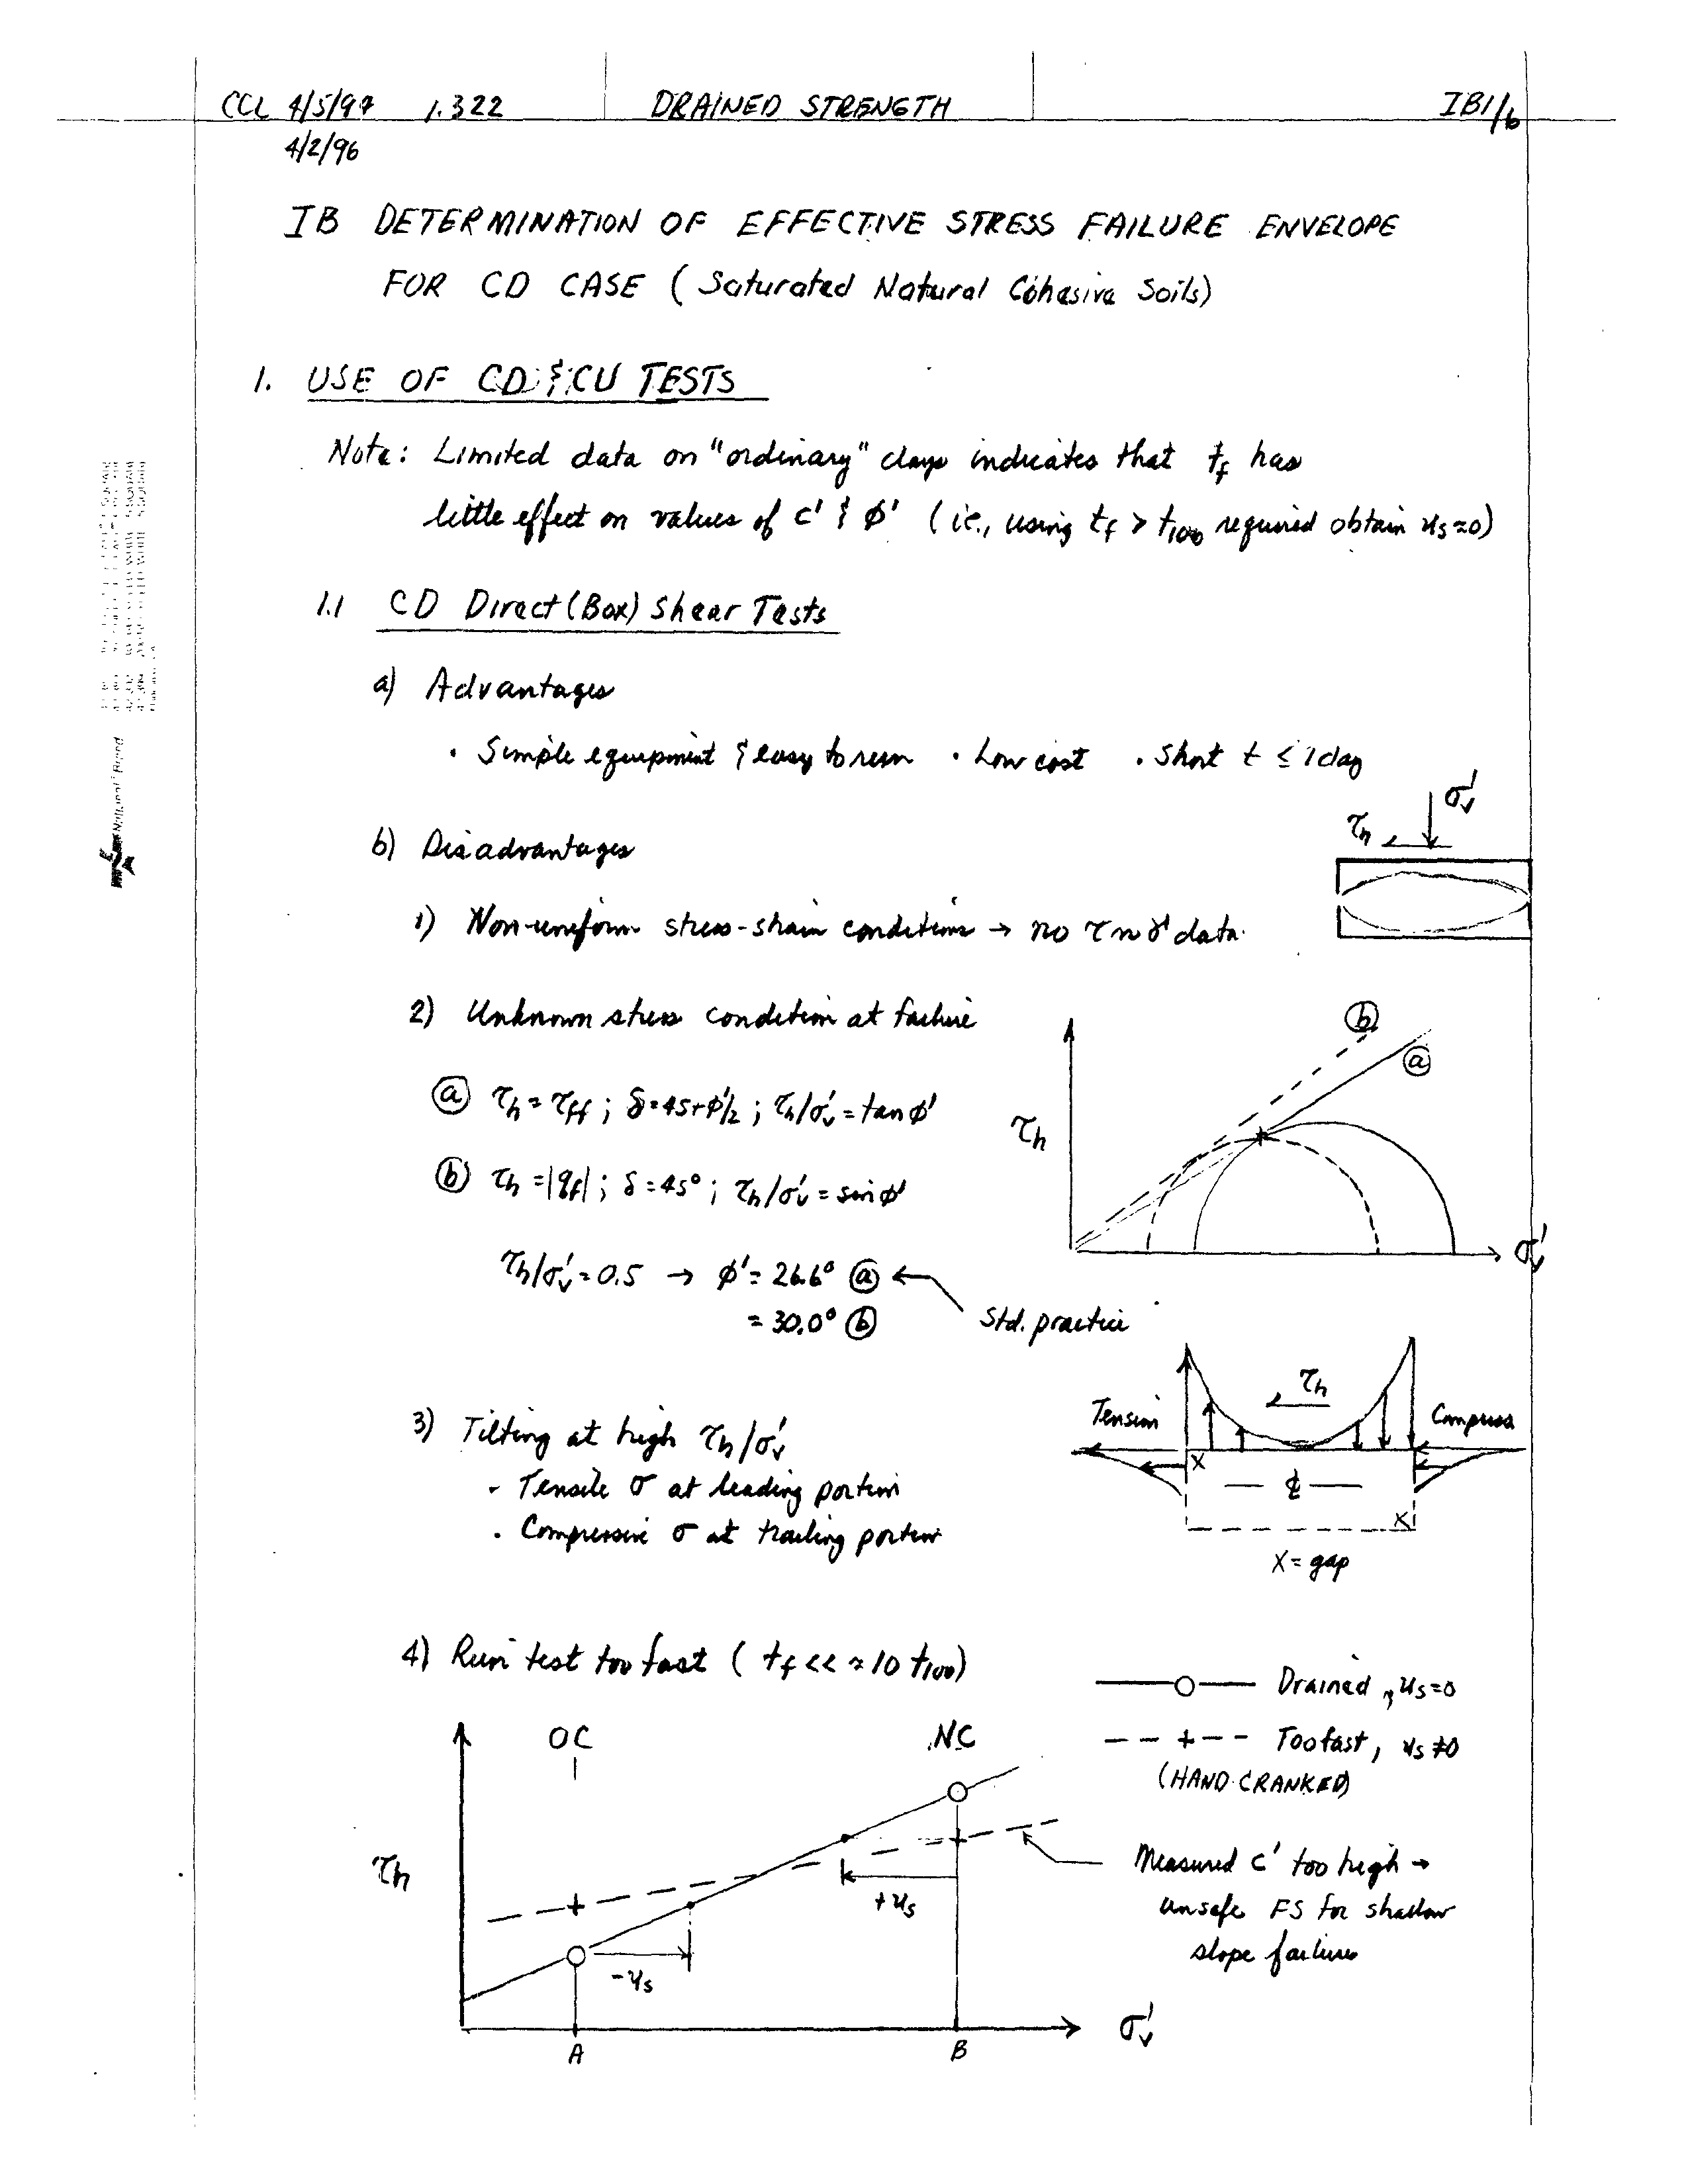 CCL 4/5/97 1.322 DRAINED STRENGTH IB1/6
4/2/96
IB DETERMINATION OF EFFECTIVE STRESS FAILURE ENVELOPE
FOR CD CASE (Saturated Natural Cohesive Soils)
1. USE OF CD & CU TESTS
Note: Limited data on "ordinary" clays indicates that tf has
little effect on values of c' & φ' (i.e., using tf > t100 required obtain us≈0)
1.1 CD Direct (Box) Shear Tests
a) Advantages
• Simple equipment & easy to run • Low cost • Short t ≤ 1 day
b) Disadvantages
σv'
τh
1) Non-uniform stress-strain conditions → no τ vs γ data
2) Unknown stress condition at failure
ⓐ τh = τff ; δ=45+φ'/2 ; τh/σv' = tan φ'
ⓑ τh = |qf| ; δ=45° ; τh/σv' = sin φ'
τh/σv' = 0.5 → φ' = 26.6° ⓐ ←
= 30.0° ⓑ
Std. practice
ⓑ
ⓐ
τh
σv'
3) Tilting at high τh/σv'
- Tensile σ at leading portion
• Compressive σ at trailing portion
τh
Tension
Compress
x
℄
x
x = gap
4) Run test too fast (tf << ≈10 t100)
Drained, us=0
Too fast, us≠0
(HAND CRANKED)
OC
NC
τh
+us
-us
Measured c' too high →
unsafe FS for shallow
slope failures
σv'
A
B
National® Brand